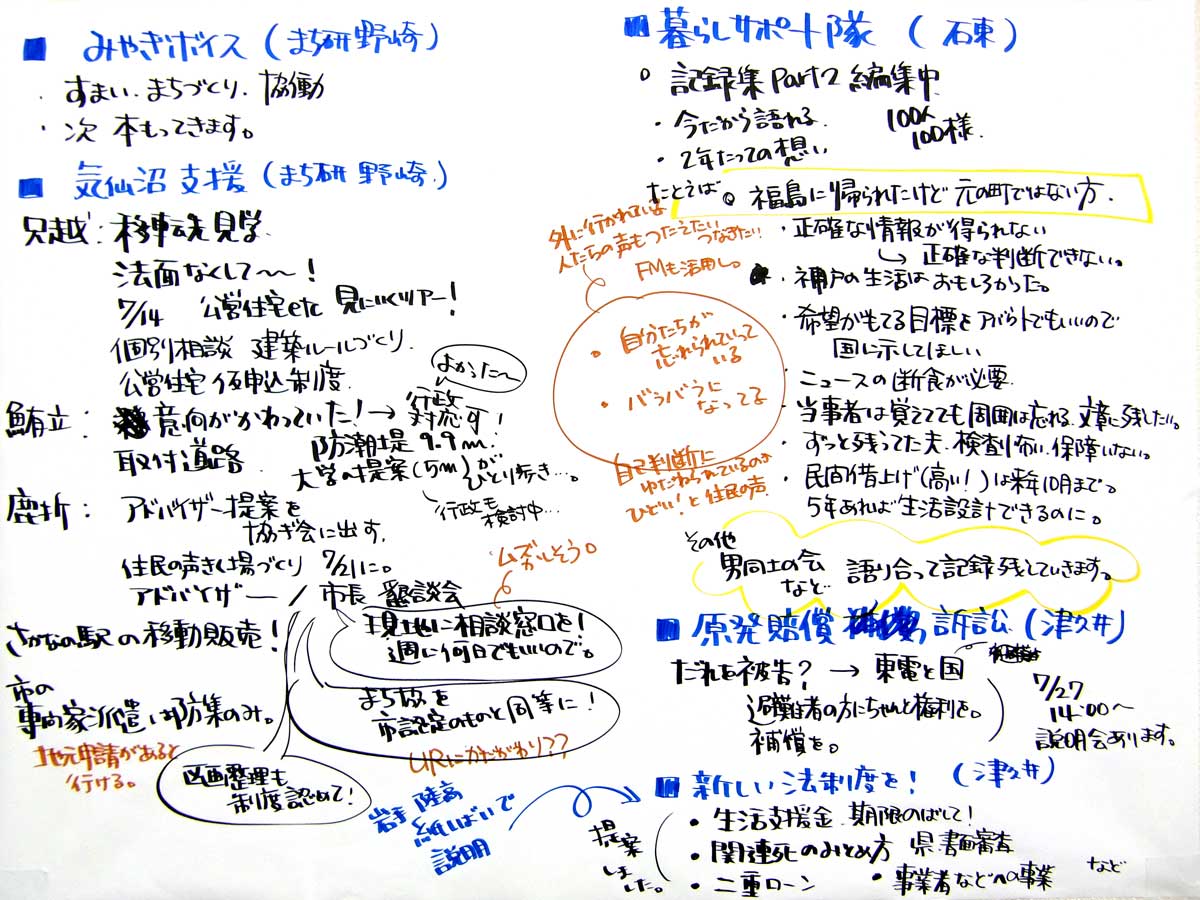 ■ みやぎボイス (まち研 野崎)
・すまい、まちづくり、協働
・次 本もってきます。
■ 気仙沼 支援 (まち研 野崎)
只越: 移転先見学
法面なくして〜!
7/14 公営住宅etc 見にいくツアー!
個別相談 建築ルールづくり
公営住宅 仮申込制度
よかった〜
鮪立: 意向がかわっていた!→ 行政対応す!
取付道路
防潮堤 9.9m
大学の提案(5m)が
ひとり歩き…。
行政も
検討中…
鹿折: アドバイザー提案を
協ぎ会に出す。
住民の声きく場づくり 7/21に。
アドバイザー/市長 懇談会
ムズかしそう。
現地に相談窓口を!
週に何日でもいいので。
さかなの駅の移動販売!
まち協を
市認定のものと同等に!
市の
専門家派遣は防集のみ。
地元申請があると
行ける。
URにかたがわり??
区画整理も
制度認めて!
岩手 陸高
紙しばいで
説明
■ 暮らしサポート隊 (石東)
○ 記録集 Part2 編集中
・今だから語れる
100人
100様
・2年たっての想い
たとえば
○ 福島に帰られたけど 元の町ではない方.
・正確な情報が得られない
↳ 正確な判断できない。
・神戸の生活はおもしろかった。
・希望がもてる目標をアバウトでもいいので
国に示してほしい
・ニュースの断食が必要
・当事者は覚えてても周囲は忘れる 文章に残したい。
・ずっと残ってた夫、検査怖い、保障いない。
・民間借上げ(高い!)は来年10月まで。
5年あれば生活設計できるのに。
外に行かれている
人たちの声もつたえたい
つなぎたい
FMも活用し。
・自分たちが
忘れられていって
いる
・バラバラに
なってる
自己判断に
ゆだねられているのは
ひどい!と住民の声
その他
男同士の会
など
語り合って記録残していきます。
■ 原発賠償 訴訟 (津久井)
だれを被告? → 東電と国
避難者の方にちゃんと権利を。
補償を。
7/27
14:00〜
説明会あります。
■ 新しい法制度を! (津久井)
提案
しました。
・生活支援金 期限のばして!
・関連死のみとめ方 県 書面審査
・二重ローン
・事業者などへの事業
など